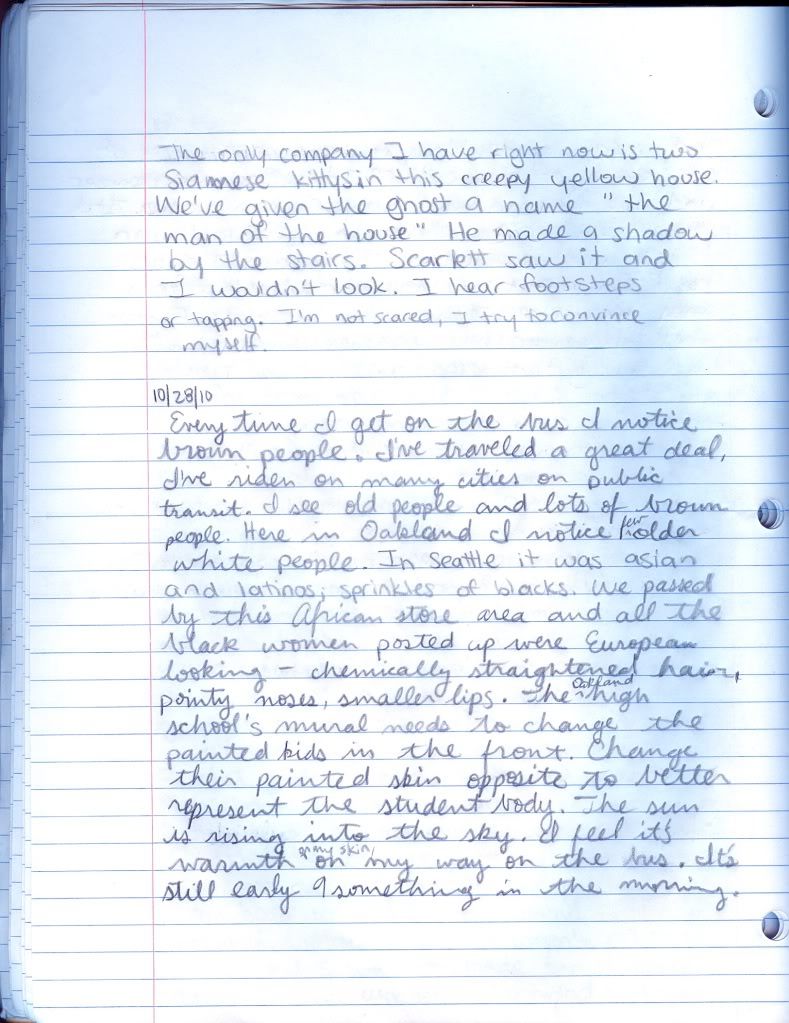 The only company I have right now is two
Siamnese kittys in this creepy yellow house.
We've given the ghost a name "the
man of the house" He made a shadow
by the stairs. Scarlett saw it and
I wouldn't look. I hear footsteps
or tapping. I'm not scared, I try to convince
myself.
10/28/10
Every time I get on the bus I notice
brown people. I've traveled a great deal,
I've riden on many cities on public
transit. I see old people and lots of brown
people. Here in Oakland I notice few older
white people. In Seattle it was asian
and latinos; sprinkles of blacks. We passed
by this African store area and all the
black women posted up were European
looking - chemically straightened hair,
pointy noses, smaller lips. The Oakland high
school's mural needs to change the
painted kids in the front. Change
their painted skin opposite to better
represent the student body. The sun
is rising into the sky. I feel it's
warmth on my skin on my way on the bus. It's
still early 9 something in the morning.